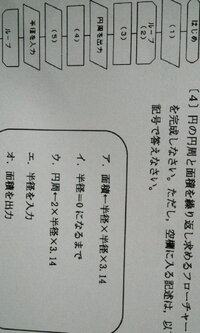 〔4〕円の円周と面積を繰り返し求めるフローチャー
を完成しなさい。ただし、空欄に入る記述は、以
記号で答えなさい。
はじめ
(1)
ループ
(2)
(3)
円周を出力
(4)
(5)
半径を入力
ループ
ア．面積←半径×半径×3.14
イ．半径＝0になるまで
ウ．円周←2×半径×3.14
エ．半径を入力
オ．面積を出力